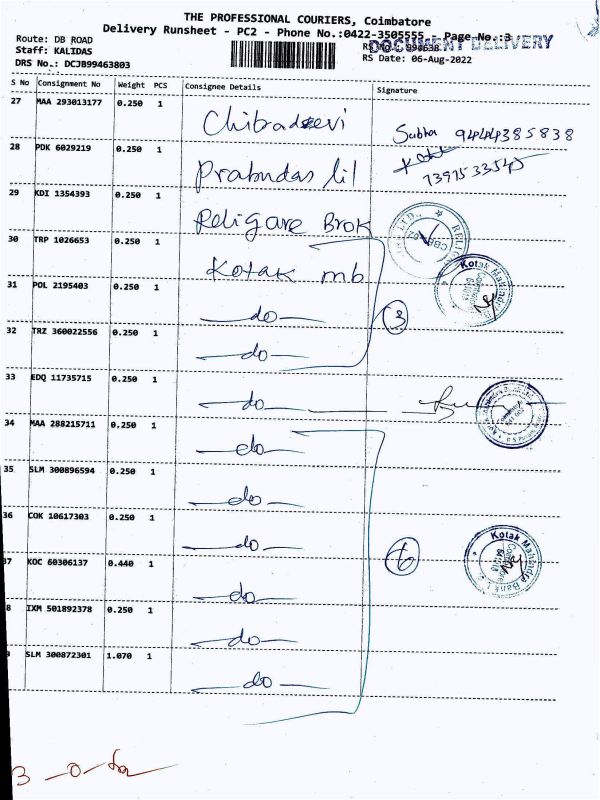 THE PROFESSIONAL COURIERS, Coimbatore
Delivery Runsheet - PC2 - Phone No.:0422-3505555 - Page No.:3
DOCUMENT DELIVERY
Route: DB ROAD
Staff: KALIDAS
DRS No.: DCJB99463803
RS Date: 06-Aug-2022
S No Consignment No Weight PCS Consignee Details Signature
27 MAA 293013177 0.250 1 Chitradevi Subha 9444385838
28 PDK 6029219 0.250 1 Prabhudas lil
29 KDI 1354393 0.250 1 Religare Brok
30 TRP 1026653 0.250 1 Kotak mb
31 POL 2195403 0.250 1 do 3
32 TRZ 360022556 0.250 1 do
33 EDQ 11735715 0.250 1 do
34 MAA 288215711 0.250 1 do
35 SLM 300896594 0.250 1 do
36 COK 10617303 0.250 1 do 6
7 KOC 60306137 0.440 1 do
8 IXM 501892378 0.250 1 do
SLM 300872301 1.070 1 do
Kotak Mahindra
Kotak Mahindra Bank